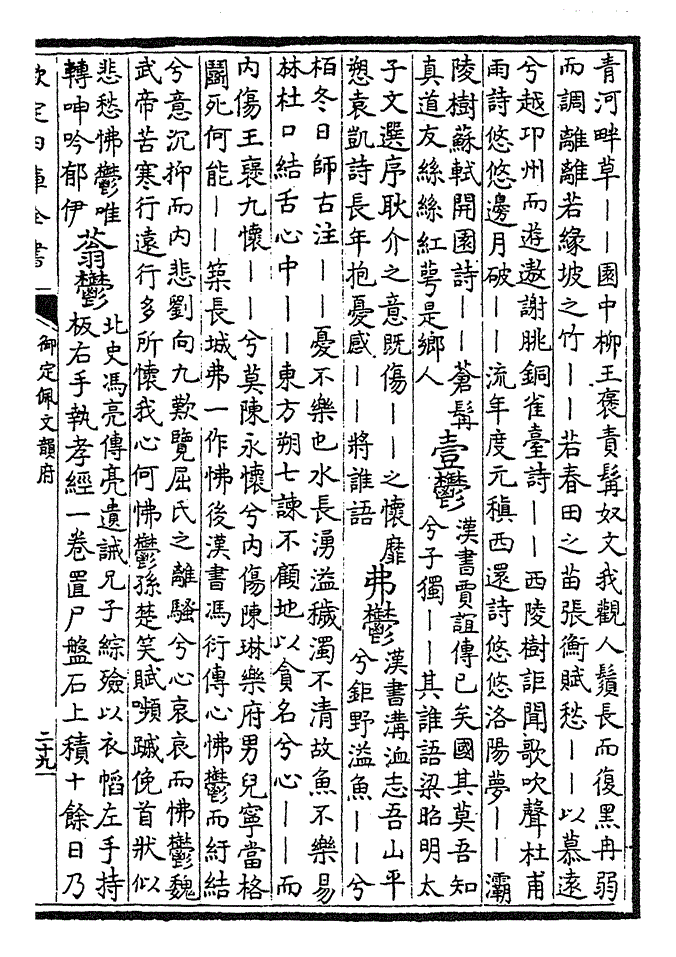 青河畔草——園中柳王褒責髯奴文我觀人鬚長而復黑冉弱
而調離離若緣坡之竹——若春田之苗張衡賦愁——以慕遠
兮越卭州而遊遨謝朓銅雀臺詩——西陵樹詎聞歌吹聲杜甫
雨詩悠悠邊月破——流年度元稹西還詩悠悠洛陽夢——灞
陵樹蘇軾開園詩——蒼髯
真道友絲絲紅萼是鄉人
壹鬱
漢書賈誼傳已矣國其莫吾知
兮子獨——其誰語梁昭明太
子文選序耿介之意既傷——之懷靡
愬袁凱詩長年抱憂感——將誰語
弗鬱
漢書溝洫志吾山平
兮鉅野溢魚——兮
栢冬日師古注——憂不樂也水長湧溢穢濁不清故魚不樂易
林杜口結舌心中——東方朔七諫不顧地以貪名兮心——而
內傷王襃九懷——兮莫陳永懷兮內傷陳琳樂府男兒寧當格
鬬死何能——築長城弗一作怫後漢書馮衍傳心怫鬱而紆結
兮意沉抑而內悲劉向九歎覽屈氏之離騷兮心哀哀而怫鬱魏
武帝苦寒行遠行多所懷我心何怫鬱孫楚笑賦嚬蹙俛首狀似
悲愁怫鬱唯
轉呻吟郁伊
蓊鬱
北史馮亮傳亮遺誡兄子綜殮以衣㡌左手持
板右手執孝經一卷置尸盤石上積十餘日乃
欽定四庫全書
御定佩文韻府
二十九